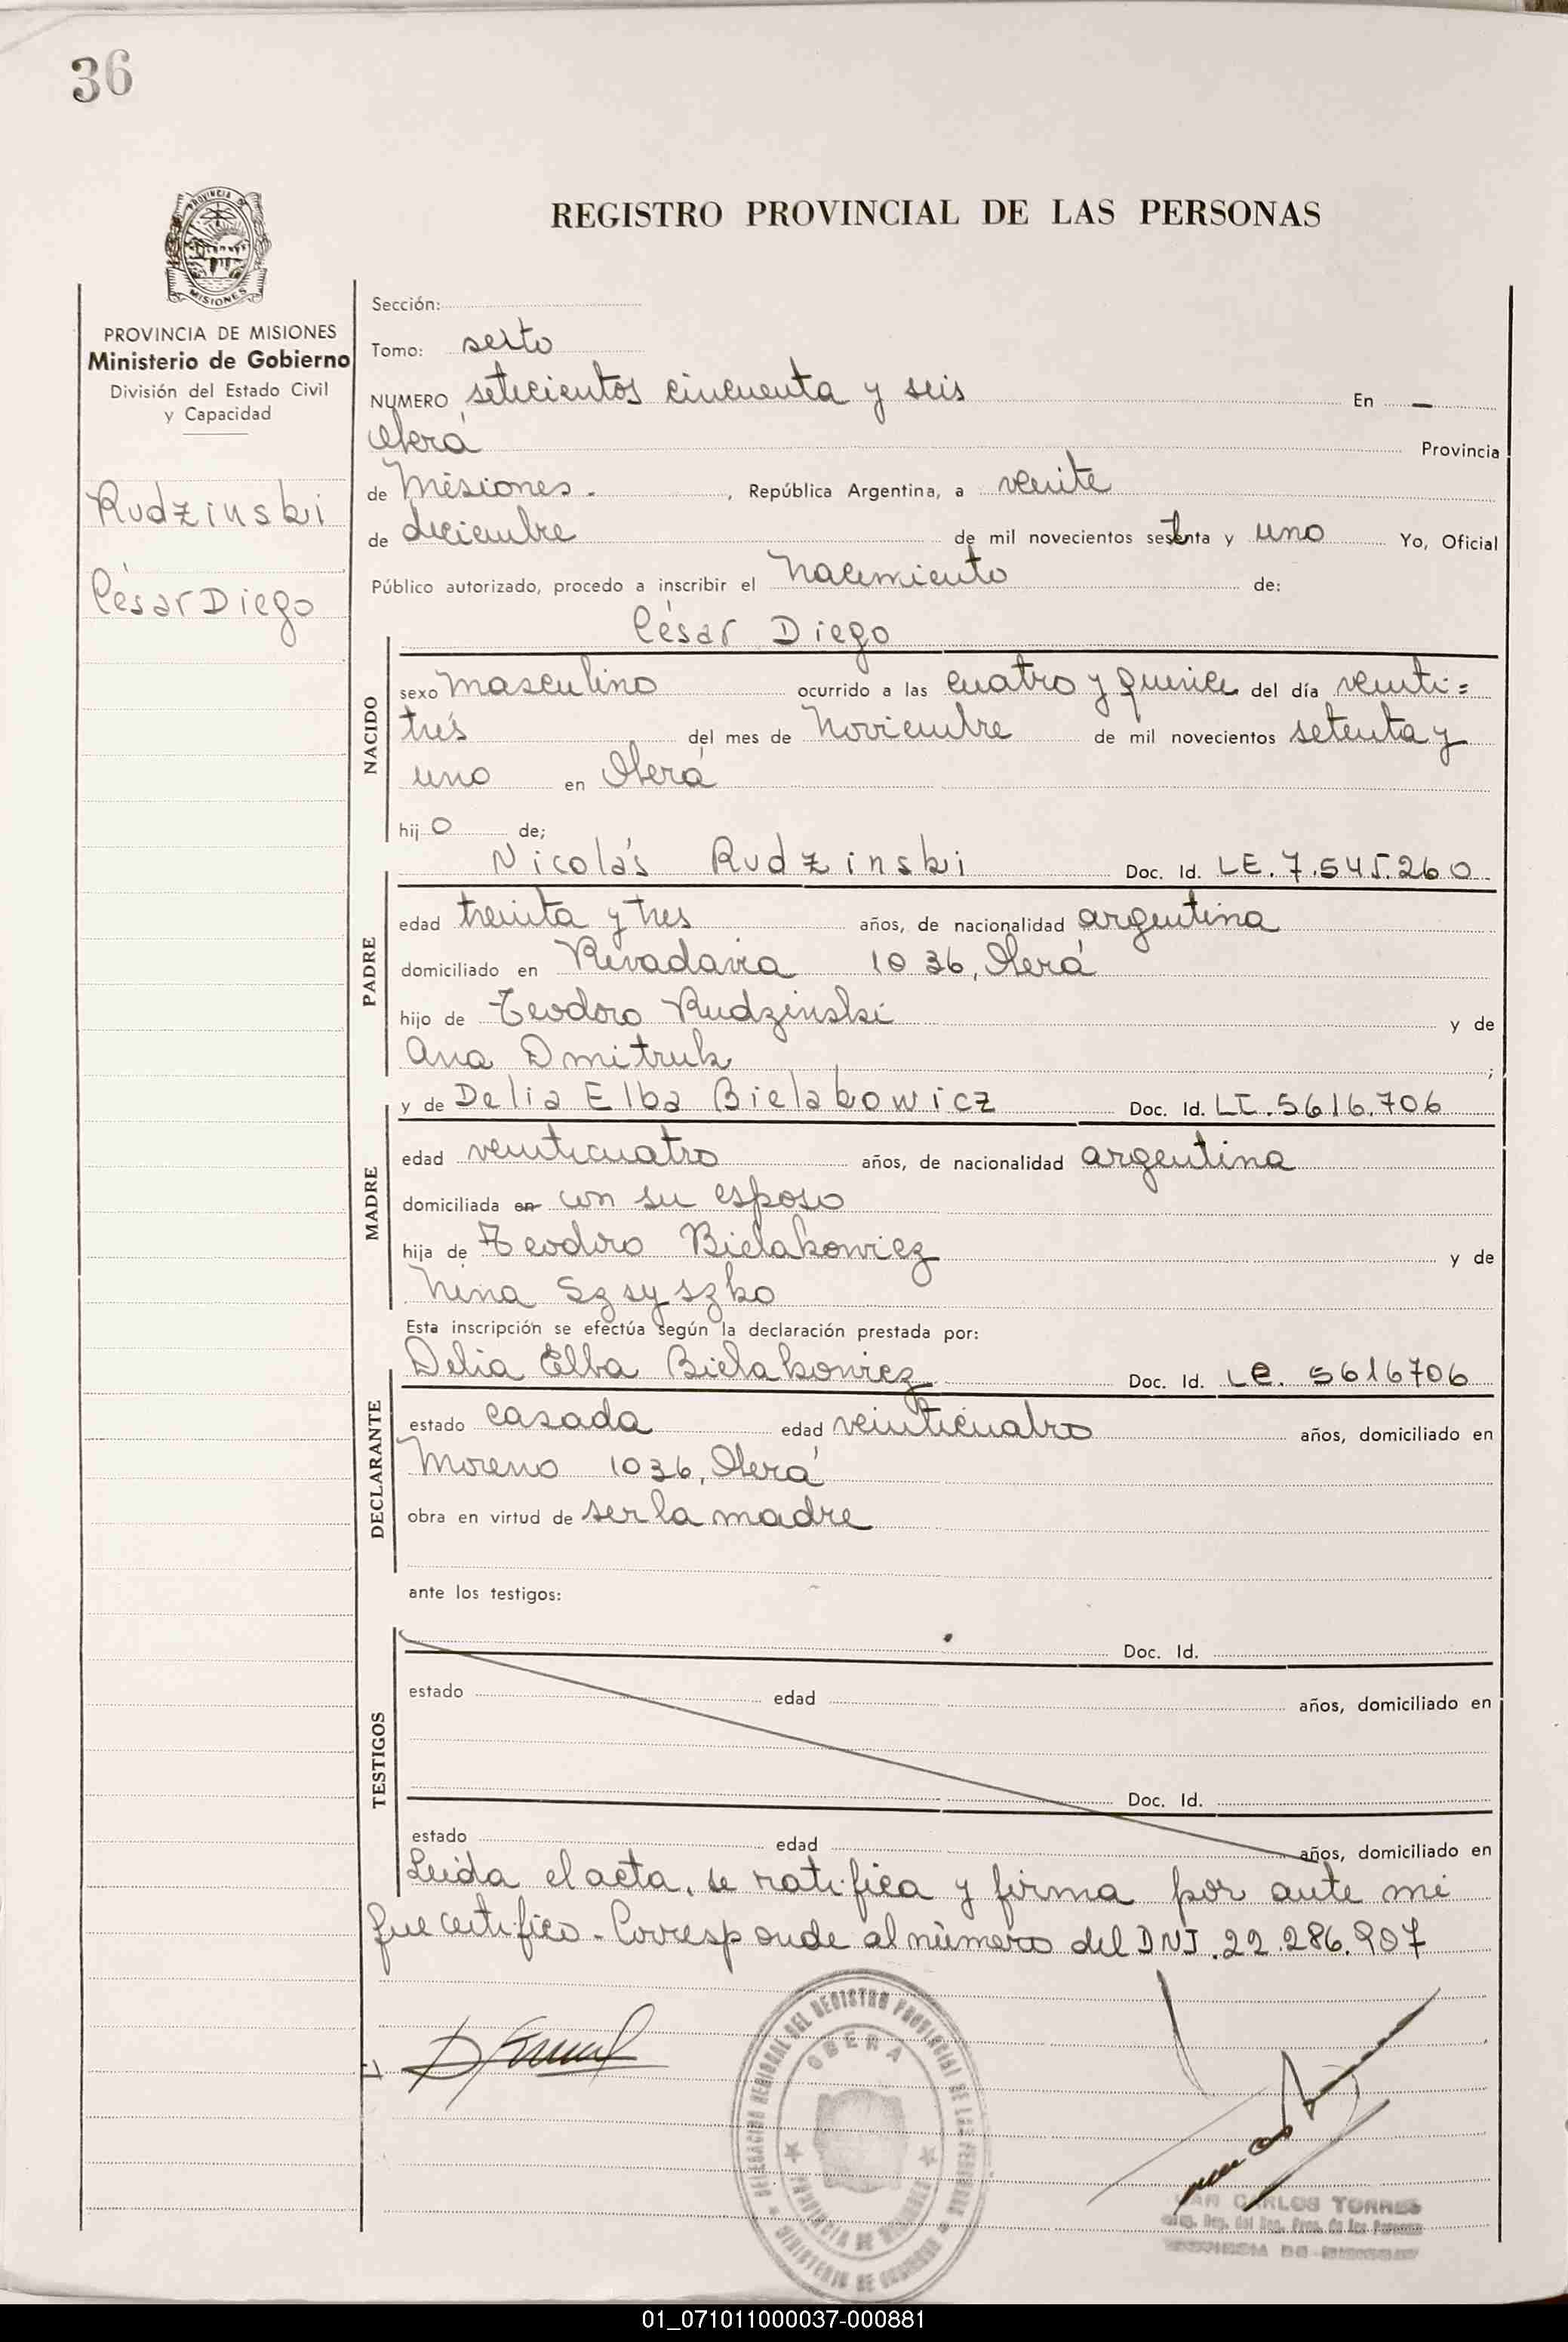 36
REGISTRO PROVINCIAL DE LAS PERSONAS
PROVINCIA DE
MISIONES
PROVINCIA DE MISIONES
Ministerio de Gobierno
División del Estado Civil
y Capacidad
Rudzinski
César Diego
Sección:
Tomo: sexto
NUMERO setecientos cincuenta y seis En —
Oberá Provincia
de Misiones. , República Argentina, a veinte
de diciembre de mil novecientos setenta y uno Yo, Oficial
Público autorizado, procedo a inscribir el nacimiento de:
César Diego
NACIDO
sexo masculino ocurrido a las cuatro y quince del día veinti=
trés del mes de noviembre de mil novecientos setenta y
uno en Oberá
hijo de;
Nicolás Rudzinski Doc. Id. LE. 7.545.260
PADRE
edad treinta y tres años, de nacionalidad argentina
domiciliado en Rivadavia 1036, Oberá
hijo de Teodoro Rudzinski y de
Ana Dmitruk ;
y de Delia Elba Bielakowicz Doc. Id. LC. 5616.706
MADRE
edad veinticuatro años, de nacionalidad argentina
domiciliada en con su esposo
hija de Teodoro Bielakowicz y de
Nina Szsyszko
Esta inscripción se efectúa según la declaración prestada por:
Delia Elba Bielakowicz Doc. Id. LC. 5616706
DECLARANTE
estado casada edad veinticuatro años, domiciliado en
Moreno 1036, Oberá
obra en virtud de ser la madre
ante los testigos:
TESTIGOS
Doc. Id.
estado edad años, domiciliado en
Doc. Id.
estado edad años, domiciliado en
Leída el acta, se ratifica y firma por ante mi
que certifico. Corresponde al número del DNI. 22.286.907
DELEGACION REGIONAL DEL REGISTRO PROVINCIAL DE LAS PERSONAS
OBERA
PROVINCIA DE MISIONES
MINISTERIO DE GOBIERNO
CARLOS TORRES
01_071011000037-000881